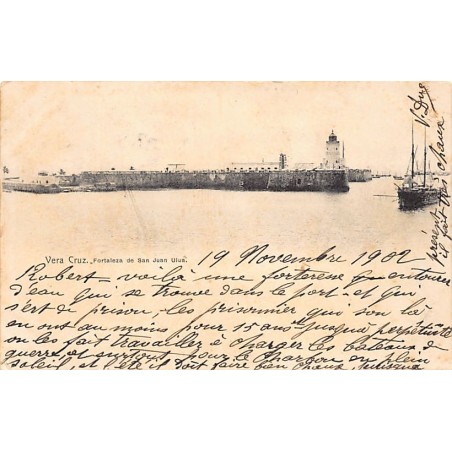 Vera Cruz. „Fortaleza de San Juan Ulua.
19 Novembre 1902
Robert - voilà une forterese qu entourée
d'eau qui se trouve dans le port - et qui
sert de prison - les prisonnier qui son là
en ont au moins pour 15 ans jusqu'a perpétuité
on les fait travailler à charger les bateaux de
guerre et surtout pour le charbon en plein
soleil, et été il doit faire bien chaux, puisque
présent
il fait très chaux